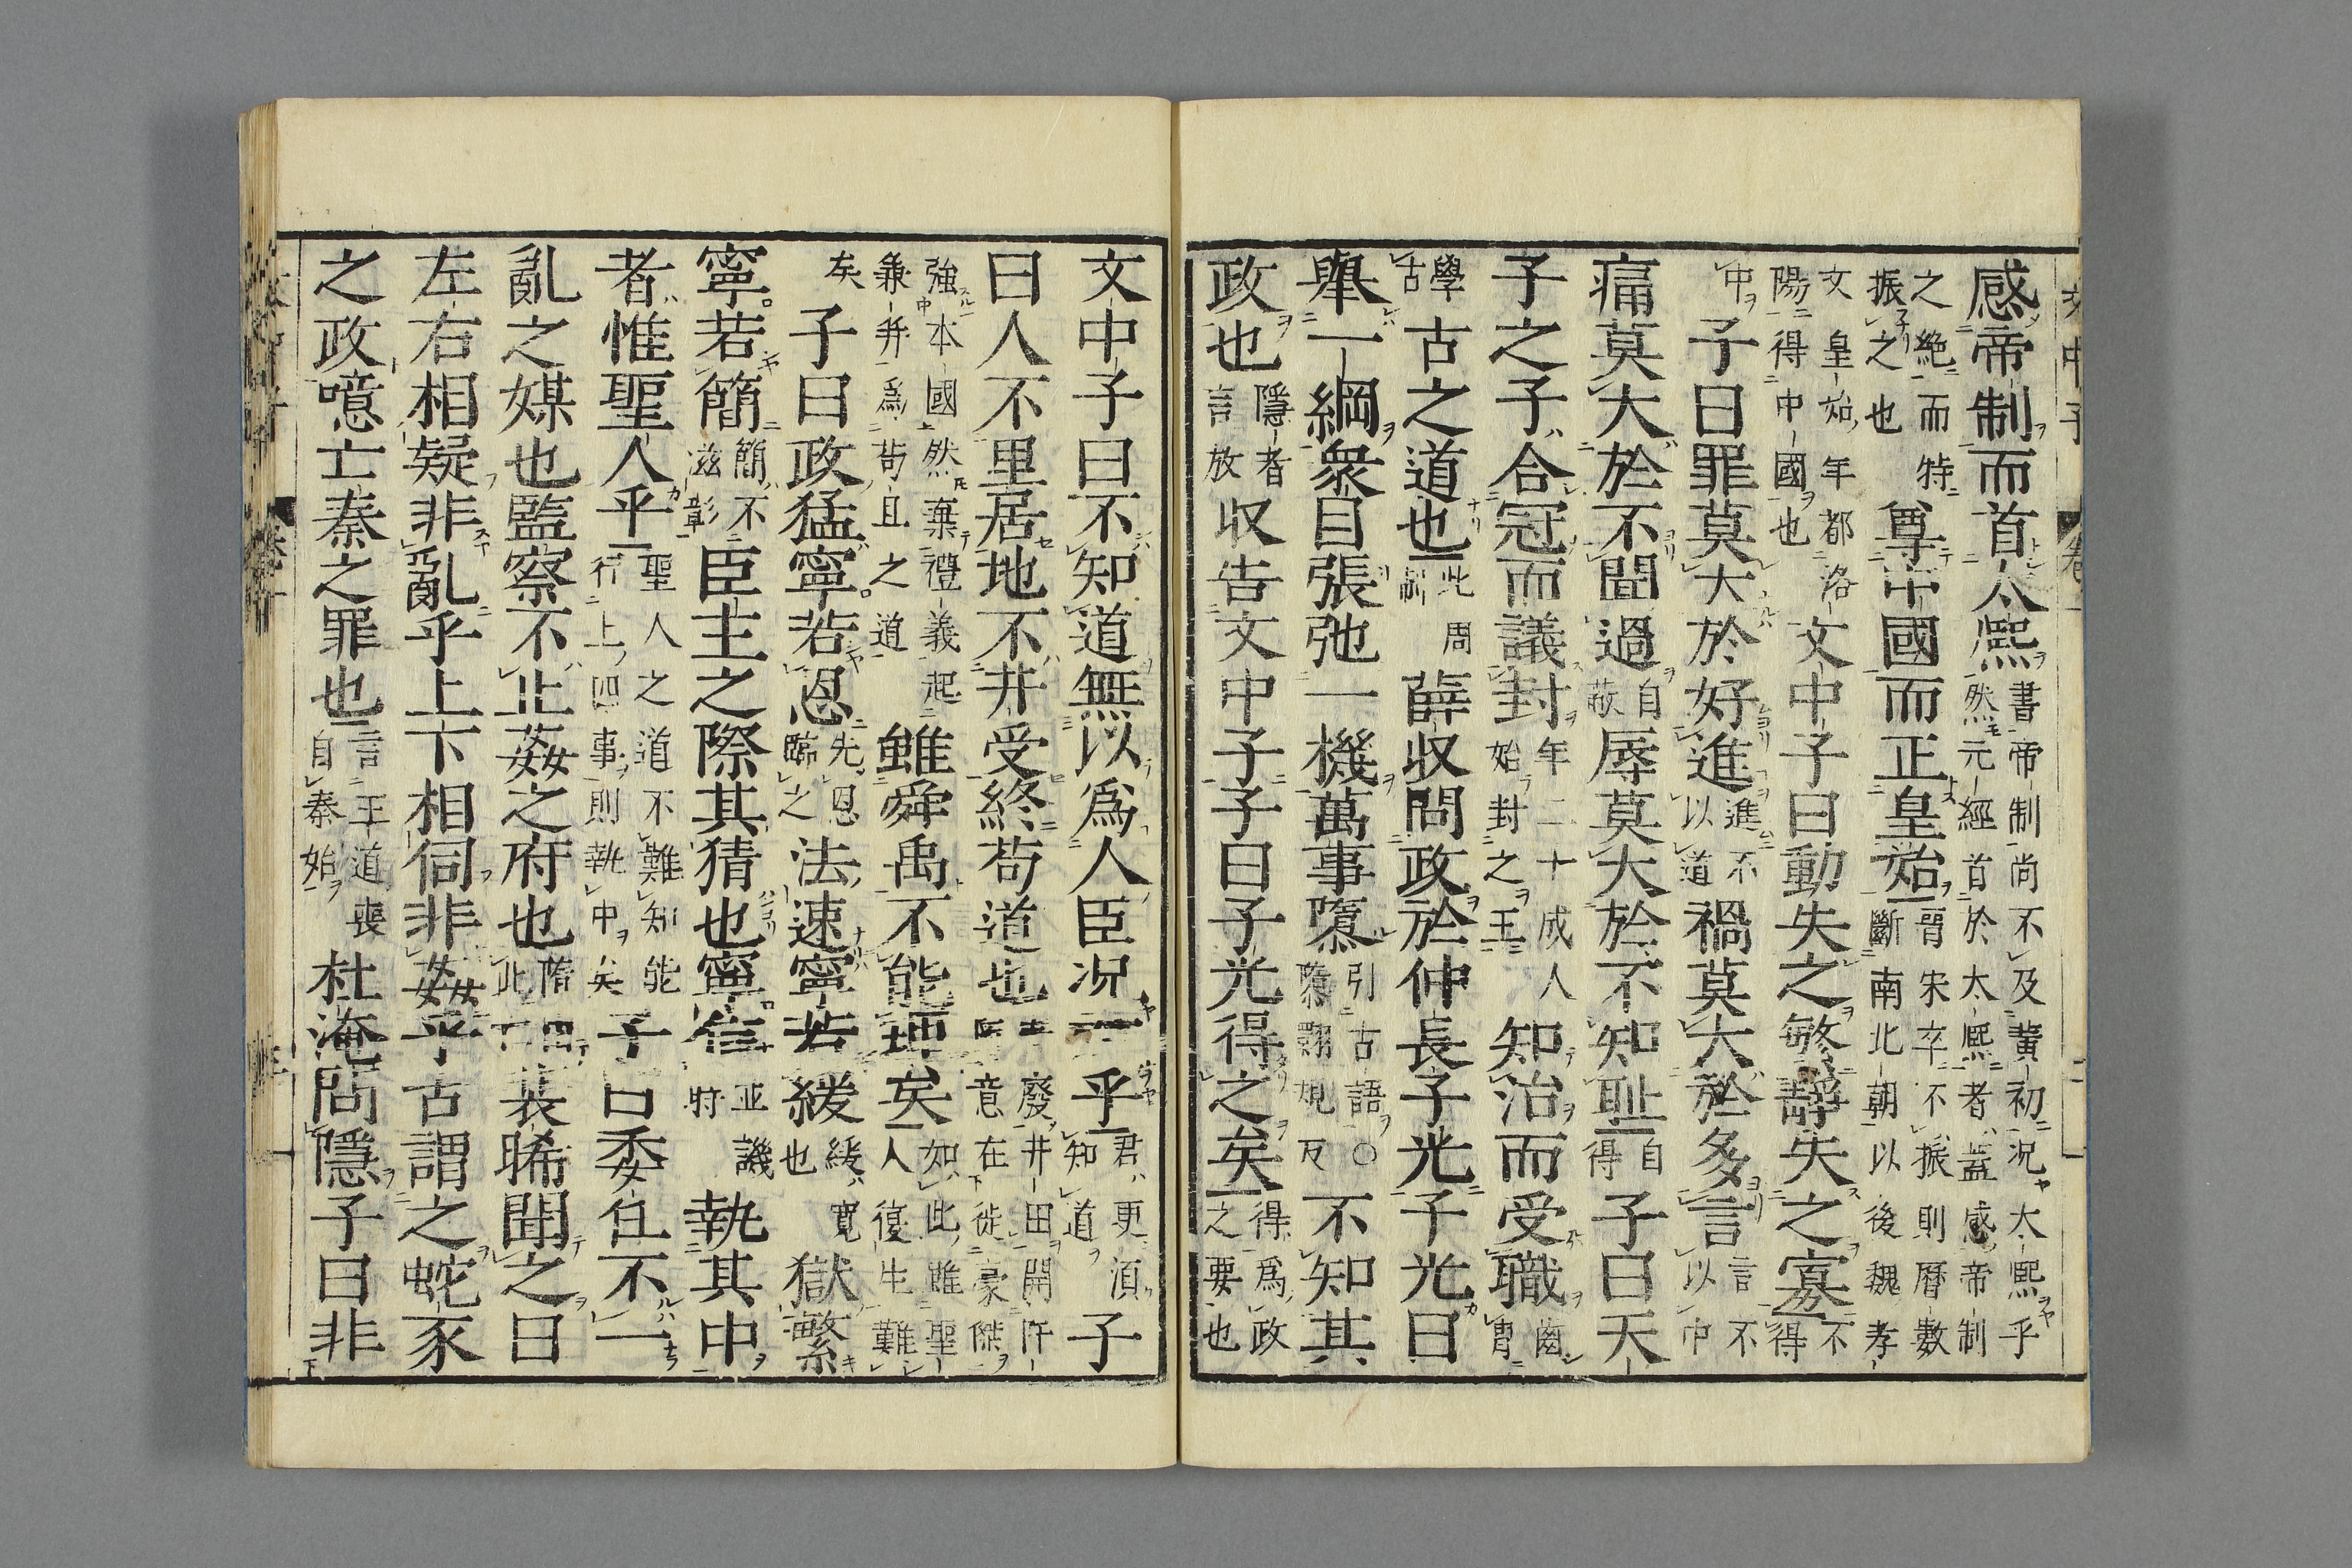 文中子
感帝制而首太熈書帝制尚不及黃初況太熈乎然元經首於太熈者蓋感帝制
之絶而特振之也尊中國而正皇始晉宋卒不振則曆數斷南北朝以後魏孝
文皇始年都洛陽得中國也文中子曰動失之繁靜失之寡不得
中子曰罪莫大於好進進不以道禍莫大於多言言不以中
痛莫大於不聞過自蔽辱莫大於不知耻自得子曰天
子之子合冠而議封年二十成人始封之王知治而受職齒冑
學古古之道也此周制薛収問政於仲長子光子光曰
舉一綱衆目張弛一機萬事隳引古語○隳翾規反不知其
政也隱者言放収告文中子子曰子光得之矣得爲政之要也
文中子曰不知道無以爲人臣況乎君更須知道子
曰人不里居地不井受終苟道也廢井田開阡意在徙豪傑
強本國然棄禮義起兼并爲苟且之道雖舜禹不能理矣如此雖聖人復生難
矣子曰政猛寧若恩先恩臨之法速寧若緩緩寬也獄繁
寧若簡簡不滋彰臣主之際其猜也寧信並譏時執其中
者惟聖人乎聖人之道不難知能行上四事則執中矣子曰委任不一
亂之媒也監察不止姦之府也隋此裴晞聞之曰
左右相疑非亂乎上下相伺非姦乎古謂之蛇豕
之政噫亡秦之罪也言王道喪自秦始杜淹問隱子曰非